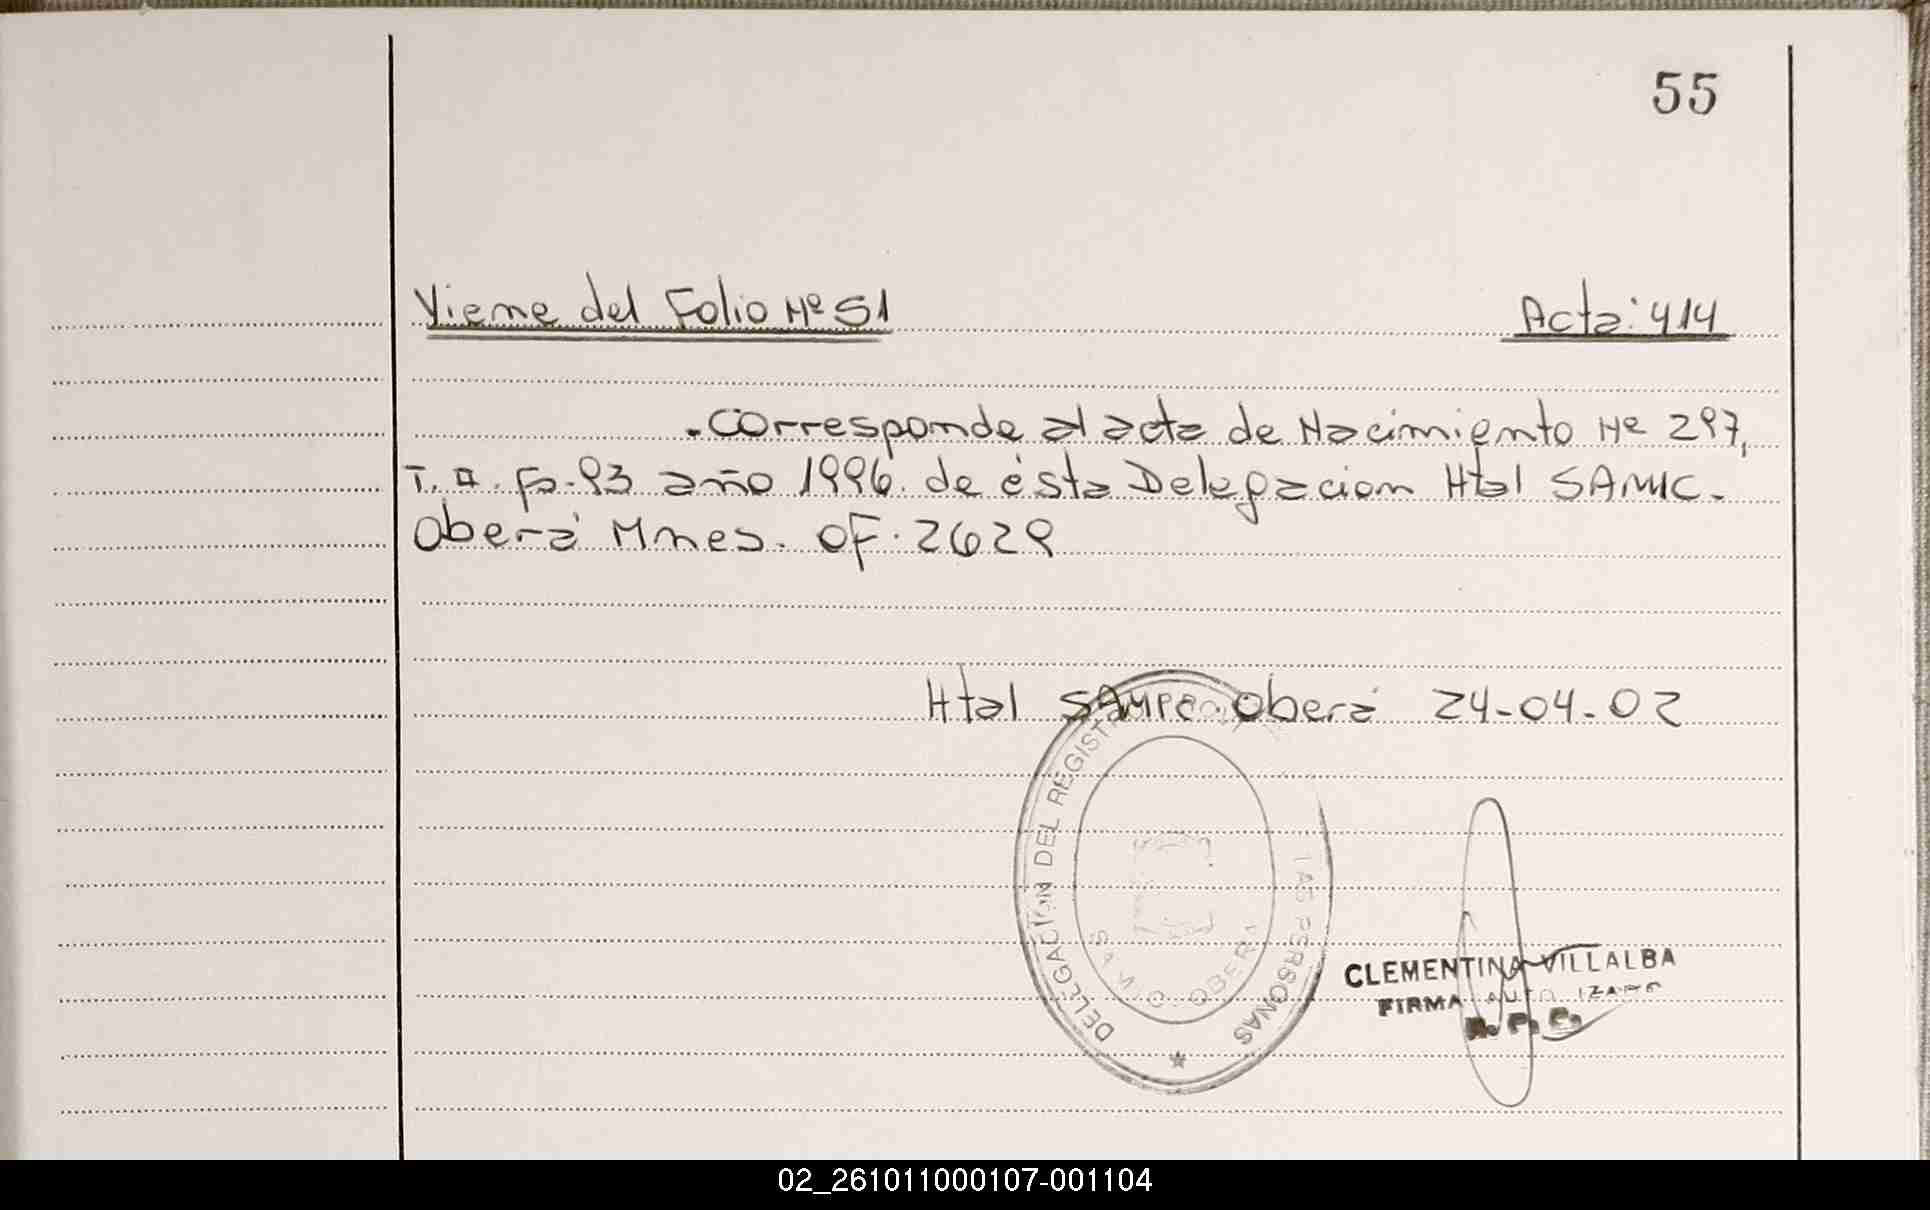 55
Viene del Folio Nº 51 Acta: 414
. Corresponde al acta de Nacimiento Nº 297,
T. II. Fº. 93 año 1996. de ésta Delegacion Htal SAMIC.
Oberá Mnes. OF. 2629
Htal SAMIC Oberá 24-04-02
DELEGACIÓN DEL REGISTR
LAS PERSONAS
SAMIC OBERA
CLEMENTINA VILLALBA
FIRMA AUTORIZADA
R. P. P.
02_261011000107-001104